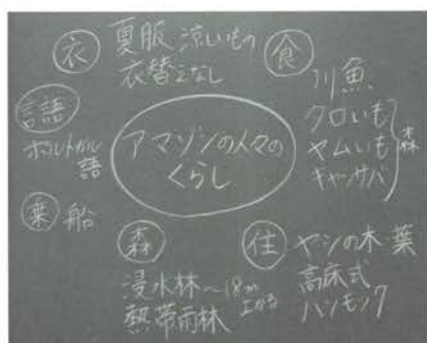 衣 夏服 涼いもの
衣替えなし
食
川魚
タロいも
ヤムいも
キャッサバ
森
言語
ポルトガル
語
アマゾンの人々の
くらし
乗 船
森
浸水林〜18m
上がる
熱帯雨林
住 ヤシの木 葉
高床式
ハンモック